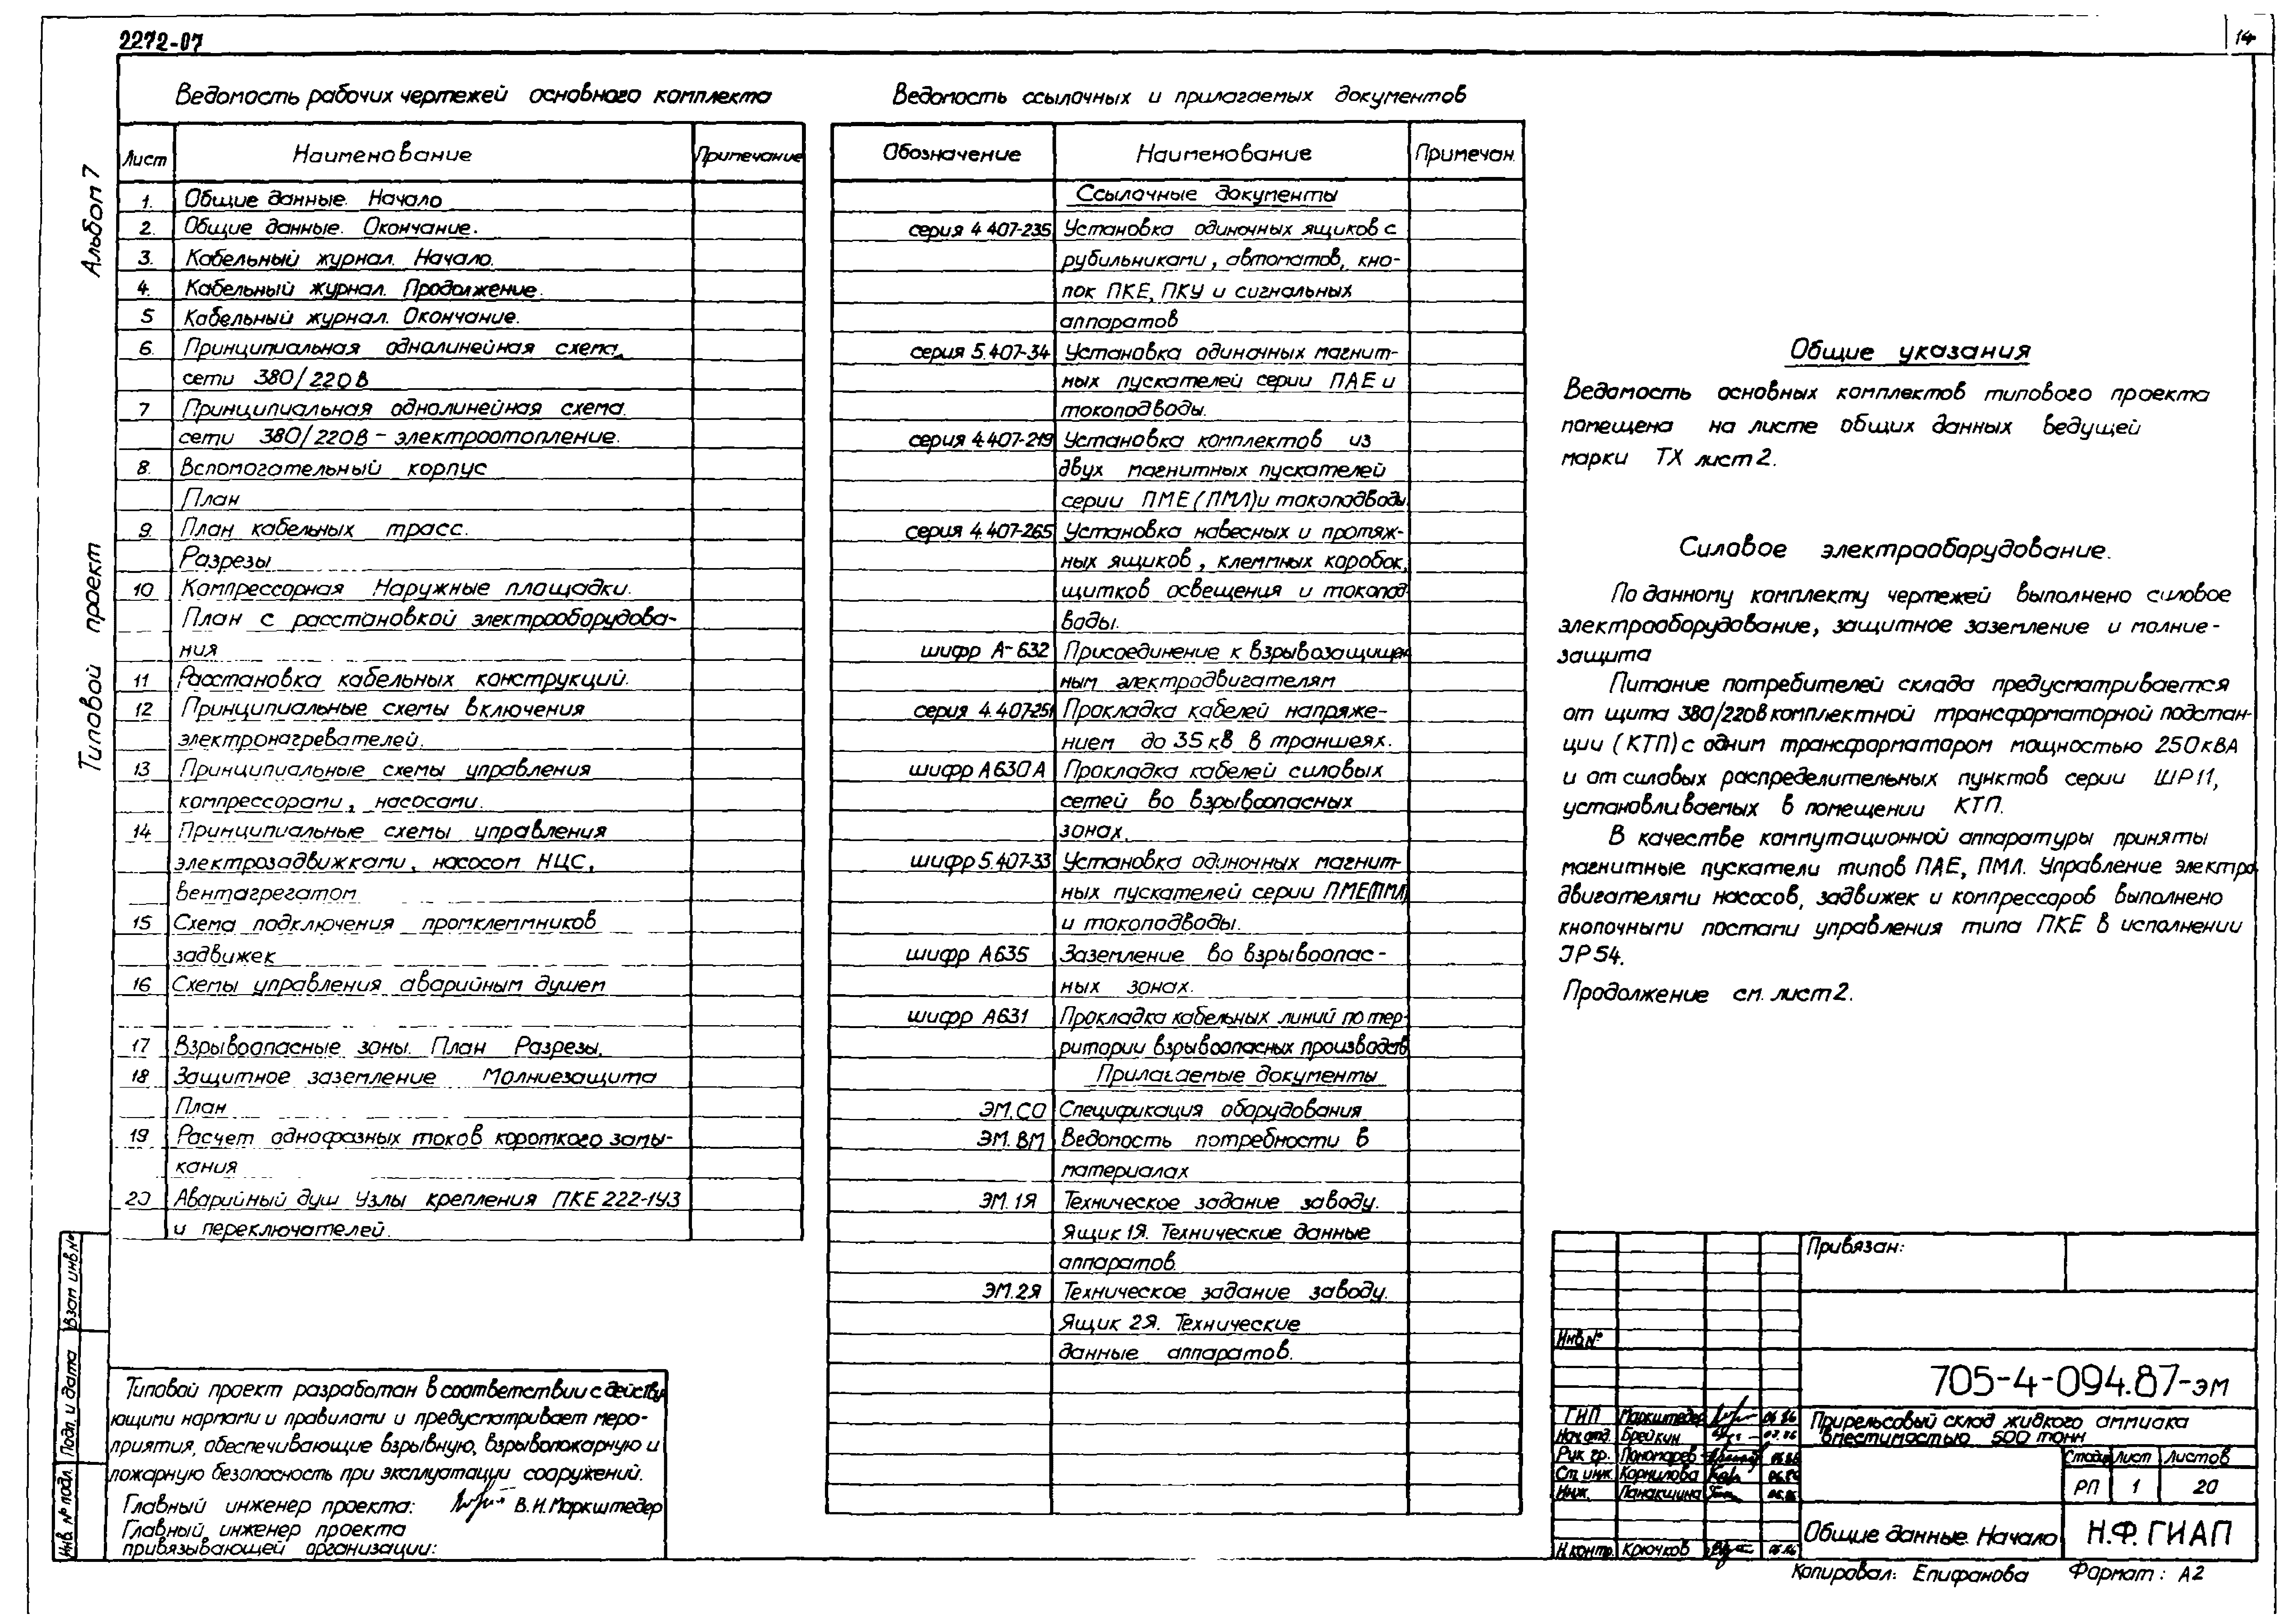 2272-07
14
Альбом 7
Типовой проект
Ведомость рабочих чертежей основного комплекта
Лист Наименование Примечание
1. Общие данные. Начало
2. Общие данные. Окончание.
3. Кабельный журнал. Начало.
4. Кабельный журнал. Продолжение.
5 Кабельный журнал. Окончание.
6. Принципиальная однолинейная схема
сети 380/220В
7 Принципиальная однолинейная схема.
сети 380/220В - электроотопление.
8. Вспомогательный корпус
План
9. План кабельных трасс.
Разрезы
10 Компрессорная Наружные площадки.
План с расстановкой электрооборудова-
ния
11 Расстановка кабельных конструкций.
12 Принципиальные схемы включения
электронагревателей.
13 Принципиальные схемы управления
компрессорами, насосами.
14 Принципиальные схемы управления
электрозадвижками, насосом НЦС,
вентагрегатом
15 Схема подключения промклеммников
задвижек
16 Схемы управления аварийным душем
17 Взрывоопасные зоны. План Разрезы.
18 Защитное заземление Молниезащита
План
19 Расчет однофазных токов короткого замы-
кания
20 Аварийный душ Узлы крепления ПКЕ 222-1У3
и переключателей.
Ведомость ссылочных и прилагаемых документов
Обозначение Наименование Примечан.
Ссылочные документы
серия 4 407-235 Установка одиночных ящиков с
рубильниками, автоматов, кно-
пок ПКЕ, ПКУ и сигнальных
аппаратов
серия 5.407-34 Установка одиночных магнит-
ных пускателей серии ПАЕ и
токоподводы.
серия 4.407-219 Установка комплектов из
двух магнитных пускателей
серии ПМЕ (ПМЛ) и токоподводы
серия 4.407-265 Установка навесных и протяж-
ных ящиков, клеммных коробок,
щитков освещения и токопод
воды.
шифр А-632 Присоединение к взрывозащищен
ным электродвигателям
серия 4.407-251 Прокладка кабелей напряже-
нием до 35 кВ в траншеях.
шифр А630А Прокладка кабелей силовых
сетей во взрывоопасных
зонах.
шифр 5.407-33 Установка одиночных магнит-
ных пускателей серии ПМЕ(ПМЛ)
и токоподводы.
шифр А635 Заземление во взрывоопас-
ных зонах.
шифр А631 Прокладка кабельных линий по тер-
ритории взрывоопасных производств
Прилагаемые документы
ЭМ.СО Спецификация оборудования
ЭМ.ВМ Ведомость потребности в
материалах
ЭМ.1Я Техническое задание заводу.
Ящик 1Я. Технические данные
аппаратов.
ЭМ.2Я Техническое задание заводу.
Ящик 2Я. Технические
данные аппаратов.
Общие указания
Ведомость основных комплектов типового проекта
помещена на листе общих данных ведущей
марки ТХ лист 2.
Силовое электрооборудование.
По данному комплекту чертежей выполнено силовое
электрооборудование, защитное заземление и молние-
защита
Питание потребителей склада предусматривается
от щита 380/220В комплектной трансформаторной подстан-
ции (КТП) с одним трансформатором мощностью 250 кВА
и от силовых распределительных пунктов серии ШР11,
устанавливаемых в помещении КТП.
В качестве коммутационной аппаратуры приняты
магнитные пускатели типов ПАЕ, ПМЛ. Управление электро
двигателями насосов, задвижек и компрессоров выполнено
кнопочными постами управления типа ПКЕ в исполнении
JP54.
Продолжение см. лист 2.
Типовой проект разработан в соответствии с действу
ющими нормами и правилами и предусматривает меро-
приятия, обеспечивающие взрывную, взрывопожарную и
пожарную безопасность при эксплуатации сооружений.
Главный инженер проекта: В.И.Маркштедер
Главный инженер проекта
привязывающей организации:
Взам инв.№
Подп. и дата
Инв. № подл.
Привязан:
Инв.№
705-4-094.87-эм
ГИП Маркштедер 06.86
Нач.отд. Брейкин
Рук гр. Пономарев
Ст. инж. Корнилова
Инж. Панакшина
Н.контр. Крючков
Прирельсовый склад жидкого аммиака
вместимостью 500 тонн
Стадия Лист Листов
РП 1 20
Общие данные. Начало
Н.Ф. ГИАП
Копировал: Епифанова Формат: А2